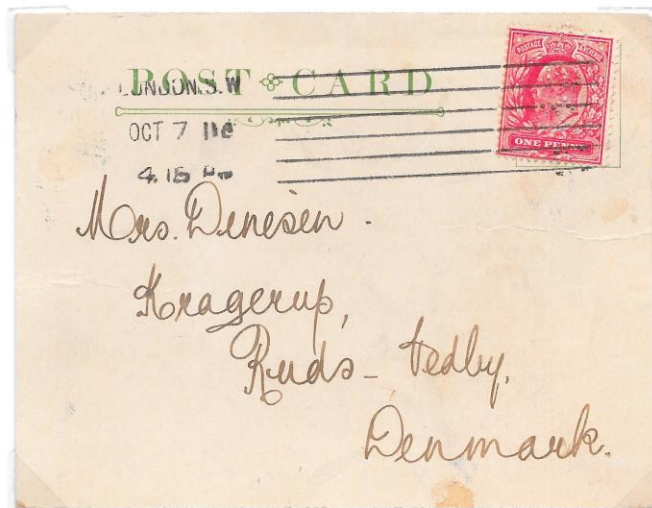 POST CARD
LONDON.S.W
OCT 7
4.15 PM
POSTAGE
ONE PENNY
Mrs. Dinesen.
Kragerup,
Ruds-Vedby,
Denmark.